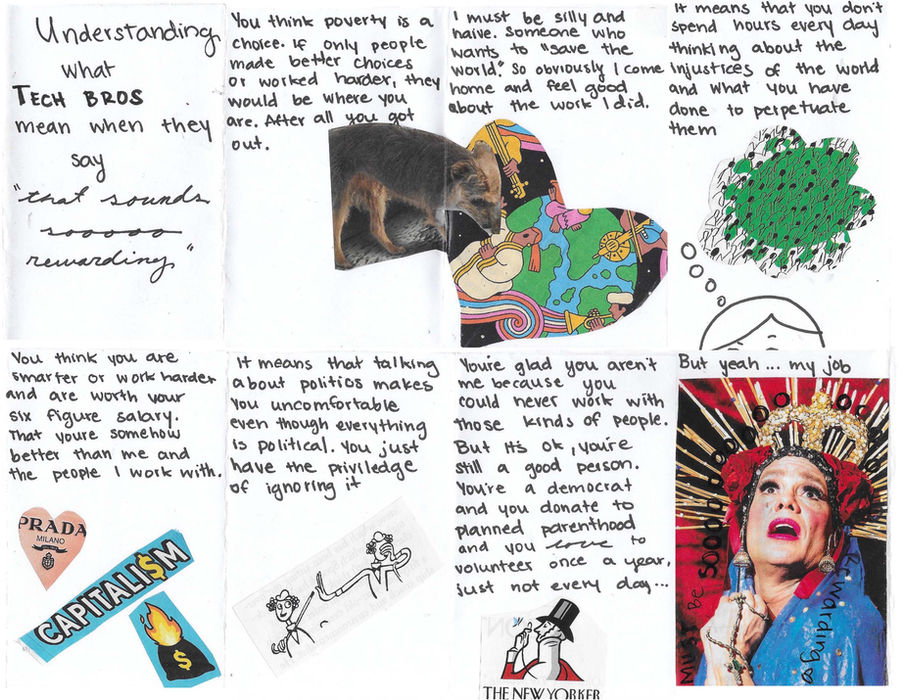 Understanding
what
TECH BROS
mean when they
say
"that sounds
sooooo
rewarding"
You think poverty is a
choice. If only people
made better choices
or worked harder, they
would be where you
are. After all you got
out.
I must be silly and
naive. Someone who
wants to "save the
world." So obviously I come
home and feel good
about the work I did.
It means that you don't
spend hours every day
thinking about the
injustices of the world
and what you have
done to perpetuate
them
You think you are
smarter or work harder
and are worth your
six figure salary.
That youre somehow
better than me and
the people I work with.
PRADA
MILANO
CAPITALI$M
$
It means that talking
about politics makes
you uncomfortable
even though everything
is political. You just
have the priviledge
of ignoring it
You're glad you aren't
me because you
could never work with
those kinds of people.
But it's ok, you're
still a good person.
You're a democrat
and you donate to
planned parenthood
and you love to
volunteer once a year,
just not every day...
THE NEW YORKER
But yeah ... my job
MUST be SOOOO oooooooo
rewarding